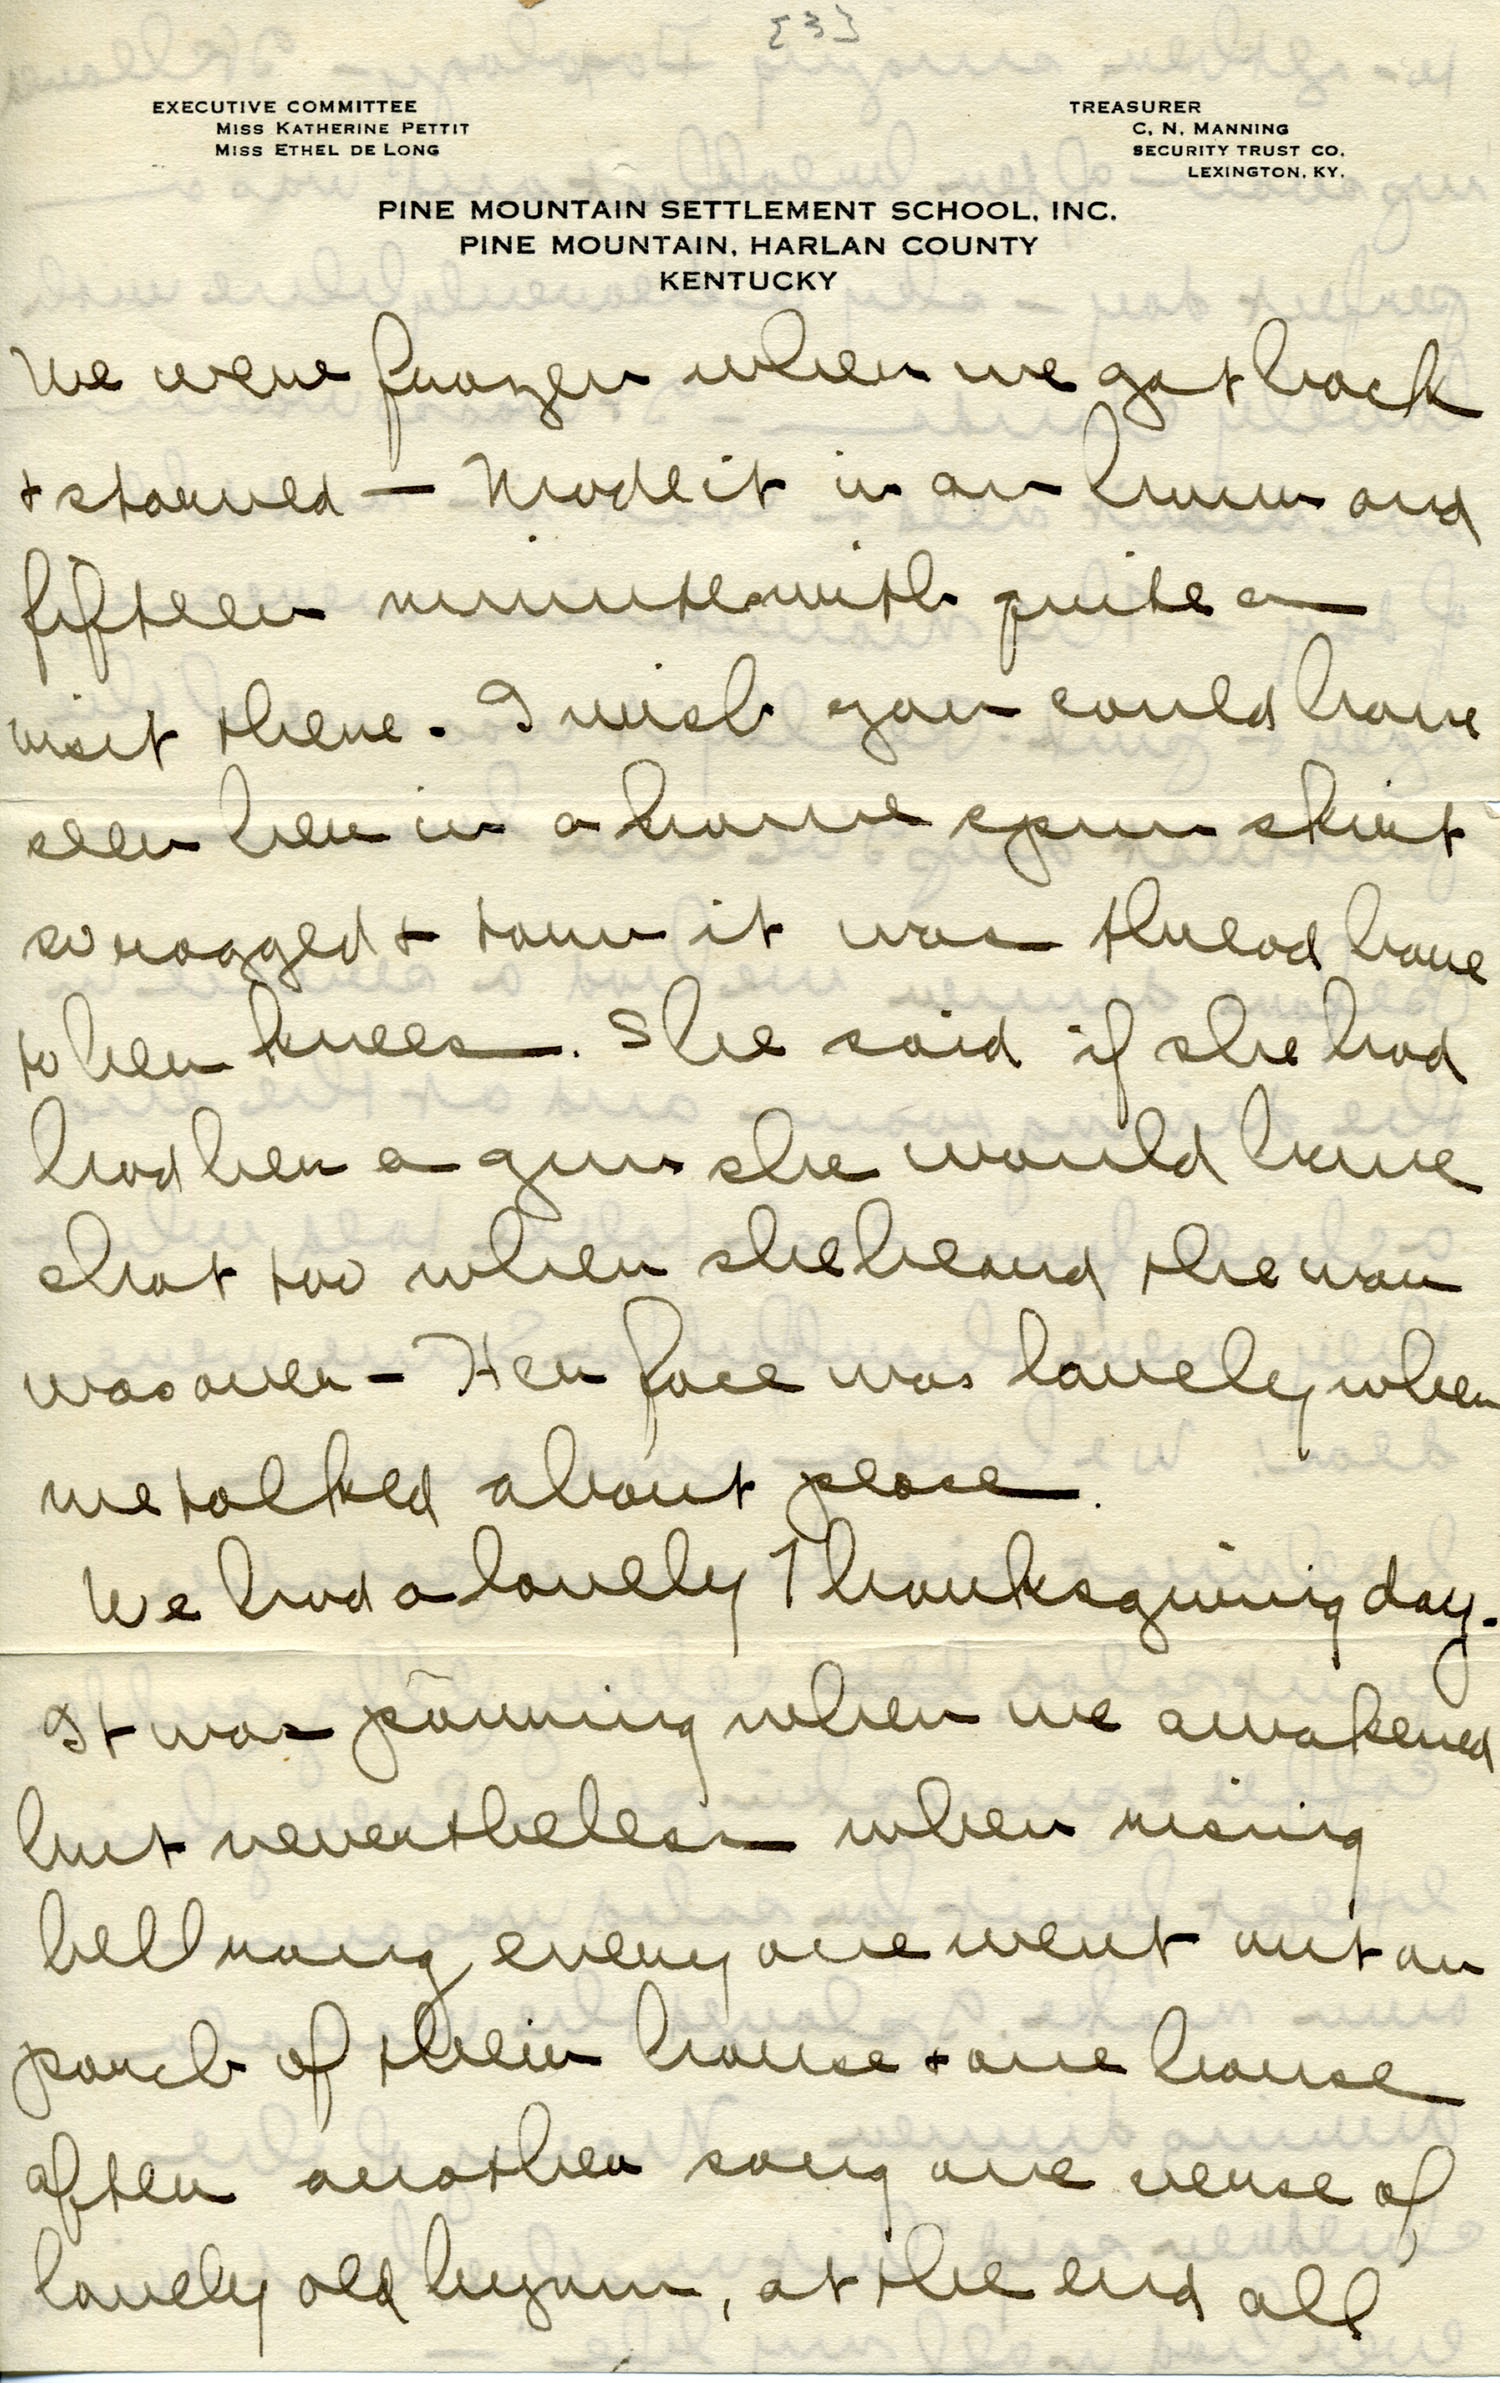 {3}
EXECUTIVE COMMITTEE
MISS KATHERINE PETTIT
MISS ETHEL DE LONG
TREASURER
C. N. MANNING
SECURITY TRUST CO.
LEXINGTON, KY.
PINE MOUNTAIN SETTLEMENT SCHOOL, INC.
PINE MOUNTAIN, HARLAN COUNTY
KENTUCKY
We were frozen when we got back
+ starved — Made it in an hour and
fifteen minutes with quite a
visit there. I wish you could have
seen her in a home spun skirt
so ragged + torn it was thread bare
to her knees. She said if she had
had her a gun she would have
shot too when she heard the war
was over — Her face was lovely when
we talked about peace.
We had a lovely Thanksgiving day.
It was pouring when we awakened
but nevertheless when rising
bell rang every one went out on
porch of their house + one house
after another sang one verse of
lovely old hymn, at the end all